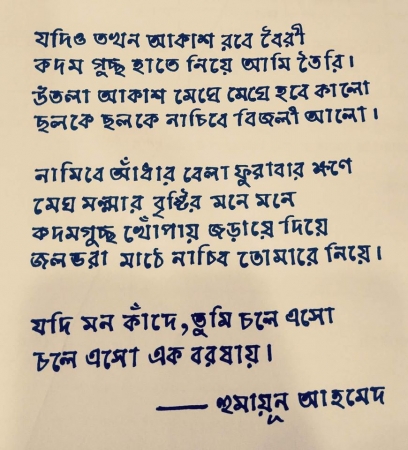 যদিও তখন আকাশ রবে বৈরী
কদম গুচ্ছ হাতে নিয়ে আমি তৈরি।
উতলা আকাশ মেঘে মেঘে হবে কালো
ছলকে ছলকে নাচিবে বিজলী আলো।
নামিবে আঁধার বেলা ফুরাবার ক্ষণে
মেঘ মল্লার বৃষ্টির মনে মনে
কদমগুচ্ছ খোঁপায় জড়ায়ে দিয়ে
জলভরা মাঠে নাচিব তোমারে নিয়ে।
যদি মন কাঁদে, তুমি চলে এসো
চলে এসো এক বরষায়।
— হুমায়ূন আহমেদ